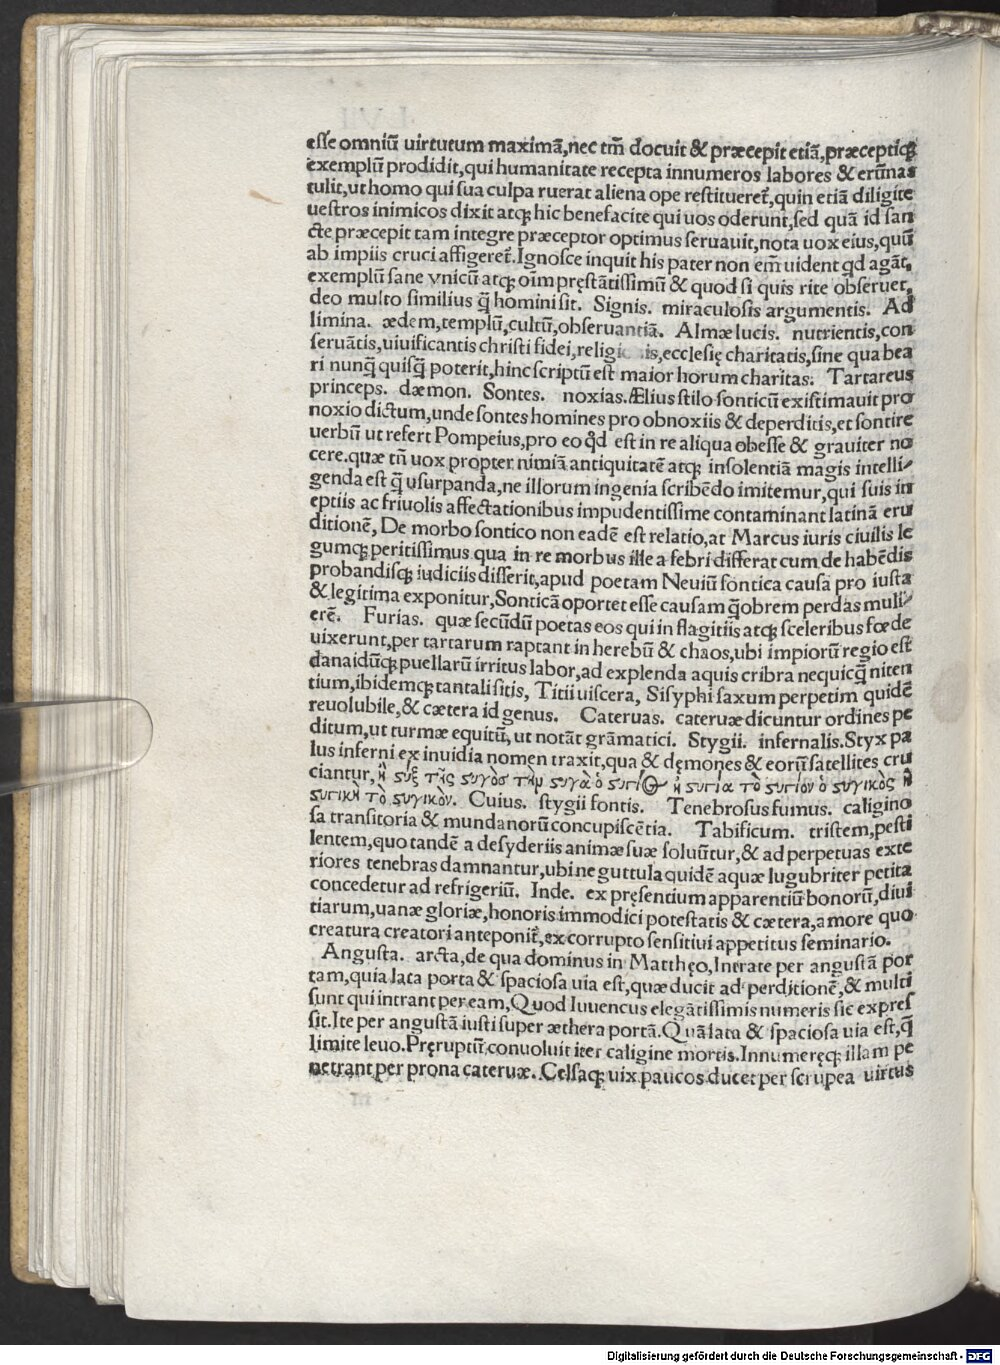 esse omniū uirtutum maximā,nec tm̄ docuit & præcepit etiā,præceptiqꝫ
exemplū prodidit,qui humanitate recepta innumeros labores & erūnas
tulit,ut homo qui sua culpa ruerat aliena ope restitueret᷑,quin etiā diligite
uestros inimicos dixit atqꝫ hic benefacite qui uos oderunt,sed quā id san
cte præcepit tam integre præceptor optimus seruauit,nota uox eius,quū
ab impiis cruci affigeret᷑.Ignosce inquit his pater non em̄ uident qd agāt,
exemplū sane vnicū atqꝫ oīm pręstātissimū & quod si quis rite obseruet,
deo multo similius q̄ homini sit. Signis. miraculosis argumentis. Ad
limina. ædem,templū,cultū,obseruantiā. Almæ lucis. nutrientis,con
seruātis,uiuificantis christi fidei,religi is,ecclesię charitatis,sine qua bea
ri nunq̄ quisq̄ poterit,hinc scriptū est maior horum charitas. Tartareus
princeps. dæmon. Sontes. noxias.Ælius stilo sonticū existimauit pro
noxio dictum,unde sontes homines pro obnoxiis & deperditis,et sontire
uerbū ut refert Pompeius,pro eo qd̄ est in re aliqua obesse & grauiter no
cere.quæ tn̄ uox propter nimiā antiquitatē atqꝫ insolentiā magis intelli⸗
genda est q̄ usurpanda,ne illorum ingenia scribēdo imitemur,qui suis in
eptiis ac friuolis affectationibus impudentissime contaminant latinā eru
ditionē, De morbo sontico non eadē est relatio,at Marcus iuris ciuilis le
gumqꝫ peritissimus qua in re morbus ille a febri differat cum de habēdis
probandisqꝫ iudiciis disserit,apud poetam Neuiū sontica causa pro iusta
& legitima exponitur,Sonticā oportet esse causam q̄obrem perdas muli⸗
erē. Furias. quæ secūdū poetas eos qui in flagitiis atqꝫ sceleribus fœde
uixerunt,per tartarum raptant in herebū & chaos,ubi impiorū regio est
danaidūqꝫ puellarū irritus labor,ad explenda aquis cribra nequicq̄ niten
tium,ibidemqꝫ tantali sitis, Titii uiscera, Sisyphi saxum perpetim quidē
reuolubile,& cætera id genus. Cateruas. cateruæ dicuntur ordines pe
ditum,ut turmæ equitū,ut notāt grāmatici. Stygii. infernalis.Styx pa
lus inferni ex inuidia nomen traxit,qua & dęmones & eorū satellites cru
ciantur,ἡ ςυξ τῆς ςυγὸσ τὴμ ςυγὰ ὁ ςυγιΘ ἡ ςυγία τὸ ςυγίον ὁ ςυγικὸς ἡ
ςυγικὴ τὸ ςυγικὸν. Cuius. stygii fontis. Tenebrosus fumus. caligino
sa transitoria & mundanorū concupiscētia. Tabificum. tristem,pesti
lentem,quo tandē a desyderiis animæ suæ soluūtur,& ad perpetuas exte
riores tenebras damnantur,ubi ne guttula quidē aquæ lugubriter petita
concedetur ad refrigeriū. Inde. ex pręsentium apparentiū bonorū,diui
tiarum,uanæ gloriæ,honoris immodici potestatis & cætera,amore quo
creatura creatori anteponit᷑,ex corrupto sensitiui appetitus seminario.
Angusta. arcta,de qua dominus in Matthęo,Intrate per angustā por
tam,quia lata porta & spaciosa uia est,quæ ducit ad perditionē,& multi
sunt qui intrant per eam,Quod Iuuencus elegātissimis numeris sic expres
sit.Ite per angustā iusti super æthera portā.Quā lata & spaciosa uia est,q̄
limite leuo.Pręruptū conuoluit iter caligine mortis.Innumeręqꝫ illam pe
netrant per prona cateruæ.Celsaqꝫ uix paucos ducet per scrupea uirtus
Digitalisierung gefördert durch die Deutsche Forschungsgemeinschaft - DFG